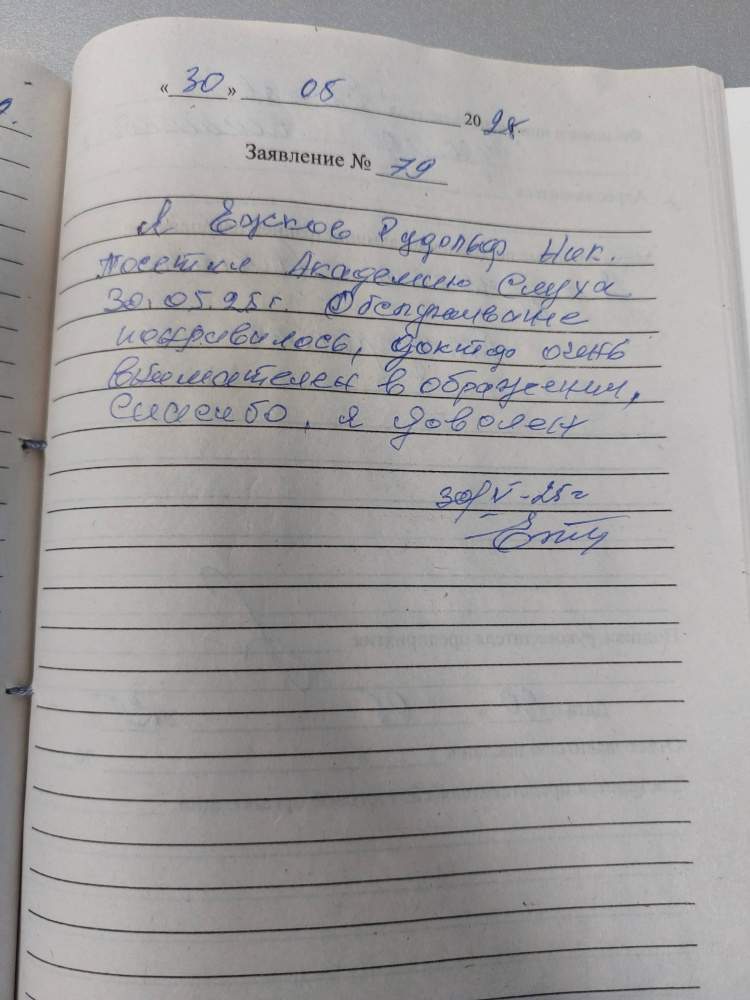 « 30 » 05 2025
Заявление № 79
Я Рудольф Ник.
посетил Академию Слуха
30.05.25г. Обслуживание
понравилось, доктор очень
внимателен в обращении,
спасибо, я доволен
30/V-25г